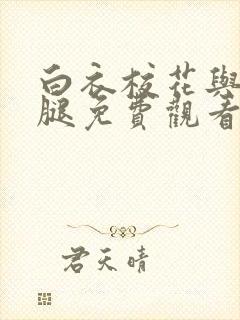 白衣校花與
腿免費觀看
君天晴